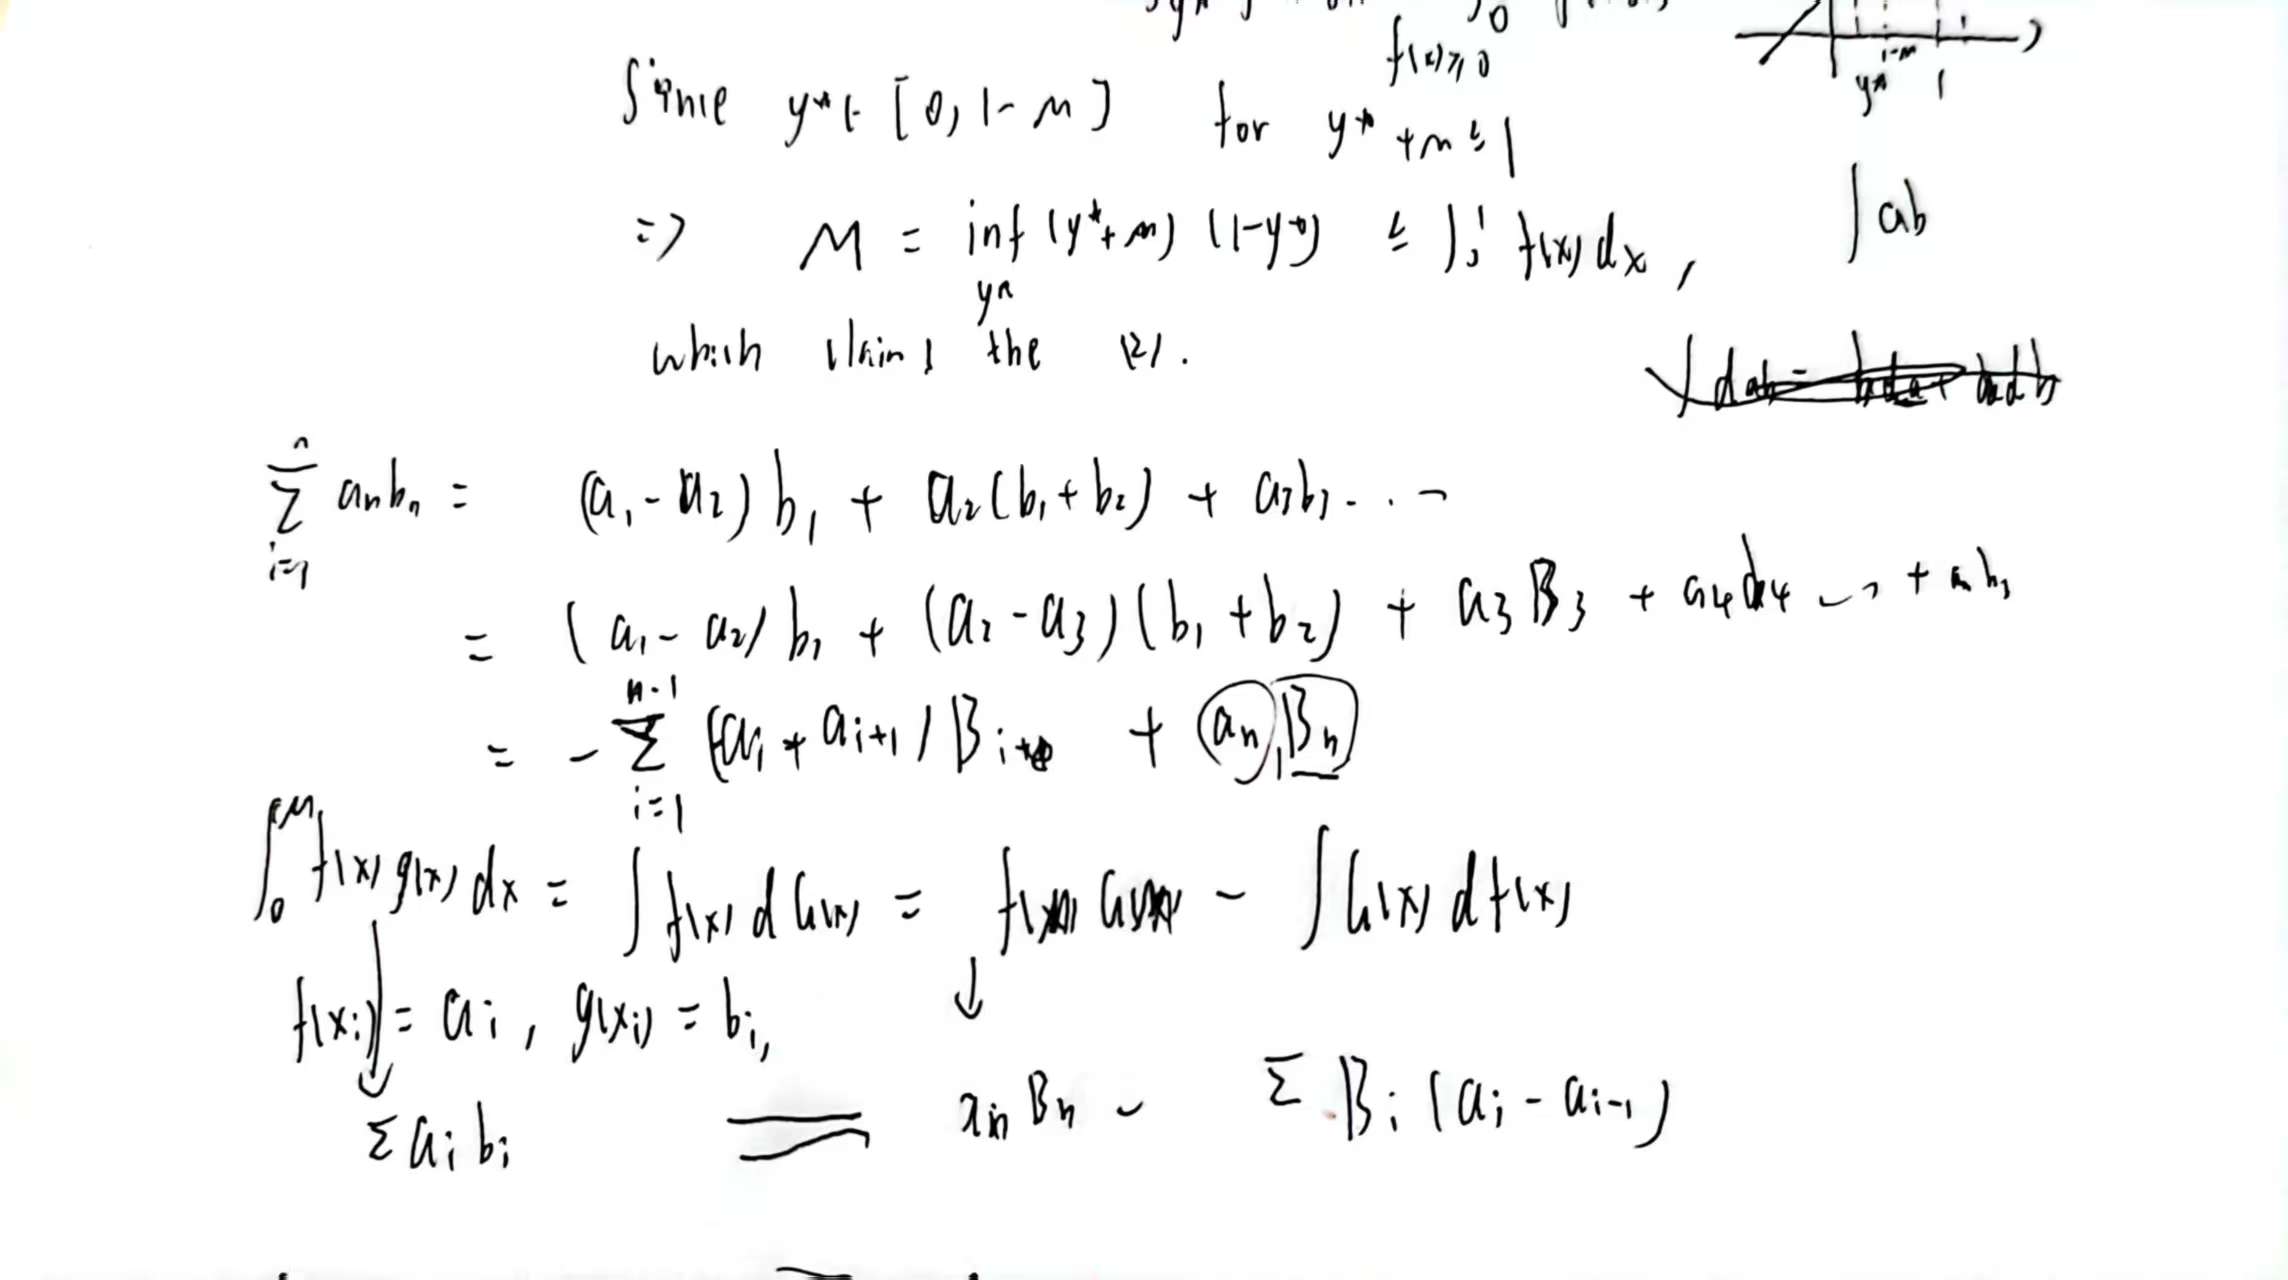 f(x)≥0
Since y* ∈ [0, 1-m] for y* + m ≤ 1
1-m
y* 1
=> M = inf (y*+m) (1-y*) ≤ ∫₀¹ f(x) dx,
y*
∫ab
which claims the (2).
∑_{i=1}^{n} aₙbₙ = (a₁-a₂) b₁ + a₂(b₁+b₂) + a₃b₃ ...
= (a₁-a₂) b₁ + (a₂-a₃)(b₁+b₂) + a₃B₃ + a₄b₄ ... + aₙbₙ
= - ∑_{i=1}^{n-1} (-aᵢ + aᵢ₊₁) Bᵢ + aₙ Bₙ
∫₀ᴹ f(x) g(x) dx = ∫ f(x) dG(x) = f(x) G(x) - ∫ G(x) df(x)
↓ ↓
f(xᵢ) = aᵢ, g(xᵢ) = bᵢ,
∑ aᵢ bᵢ = aₙ Bₙ - ∑ Bᵢ (aᵢ - aᵢ₋₁)